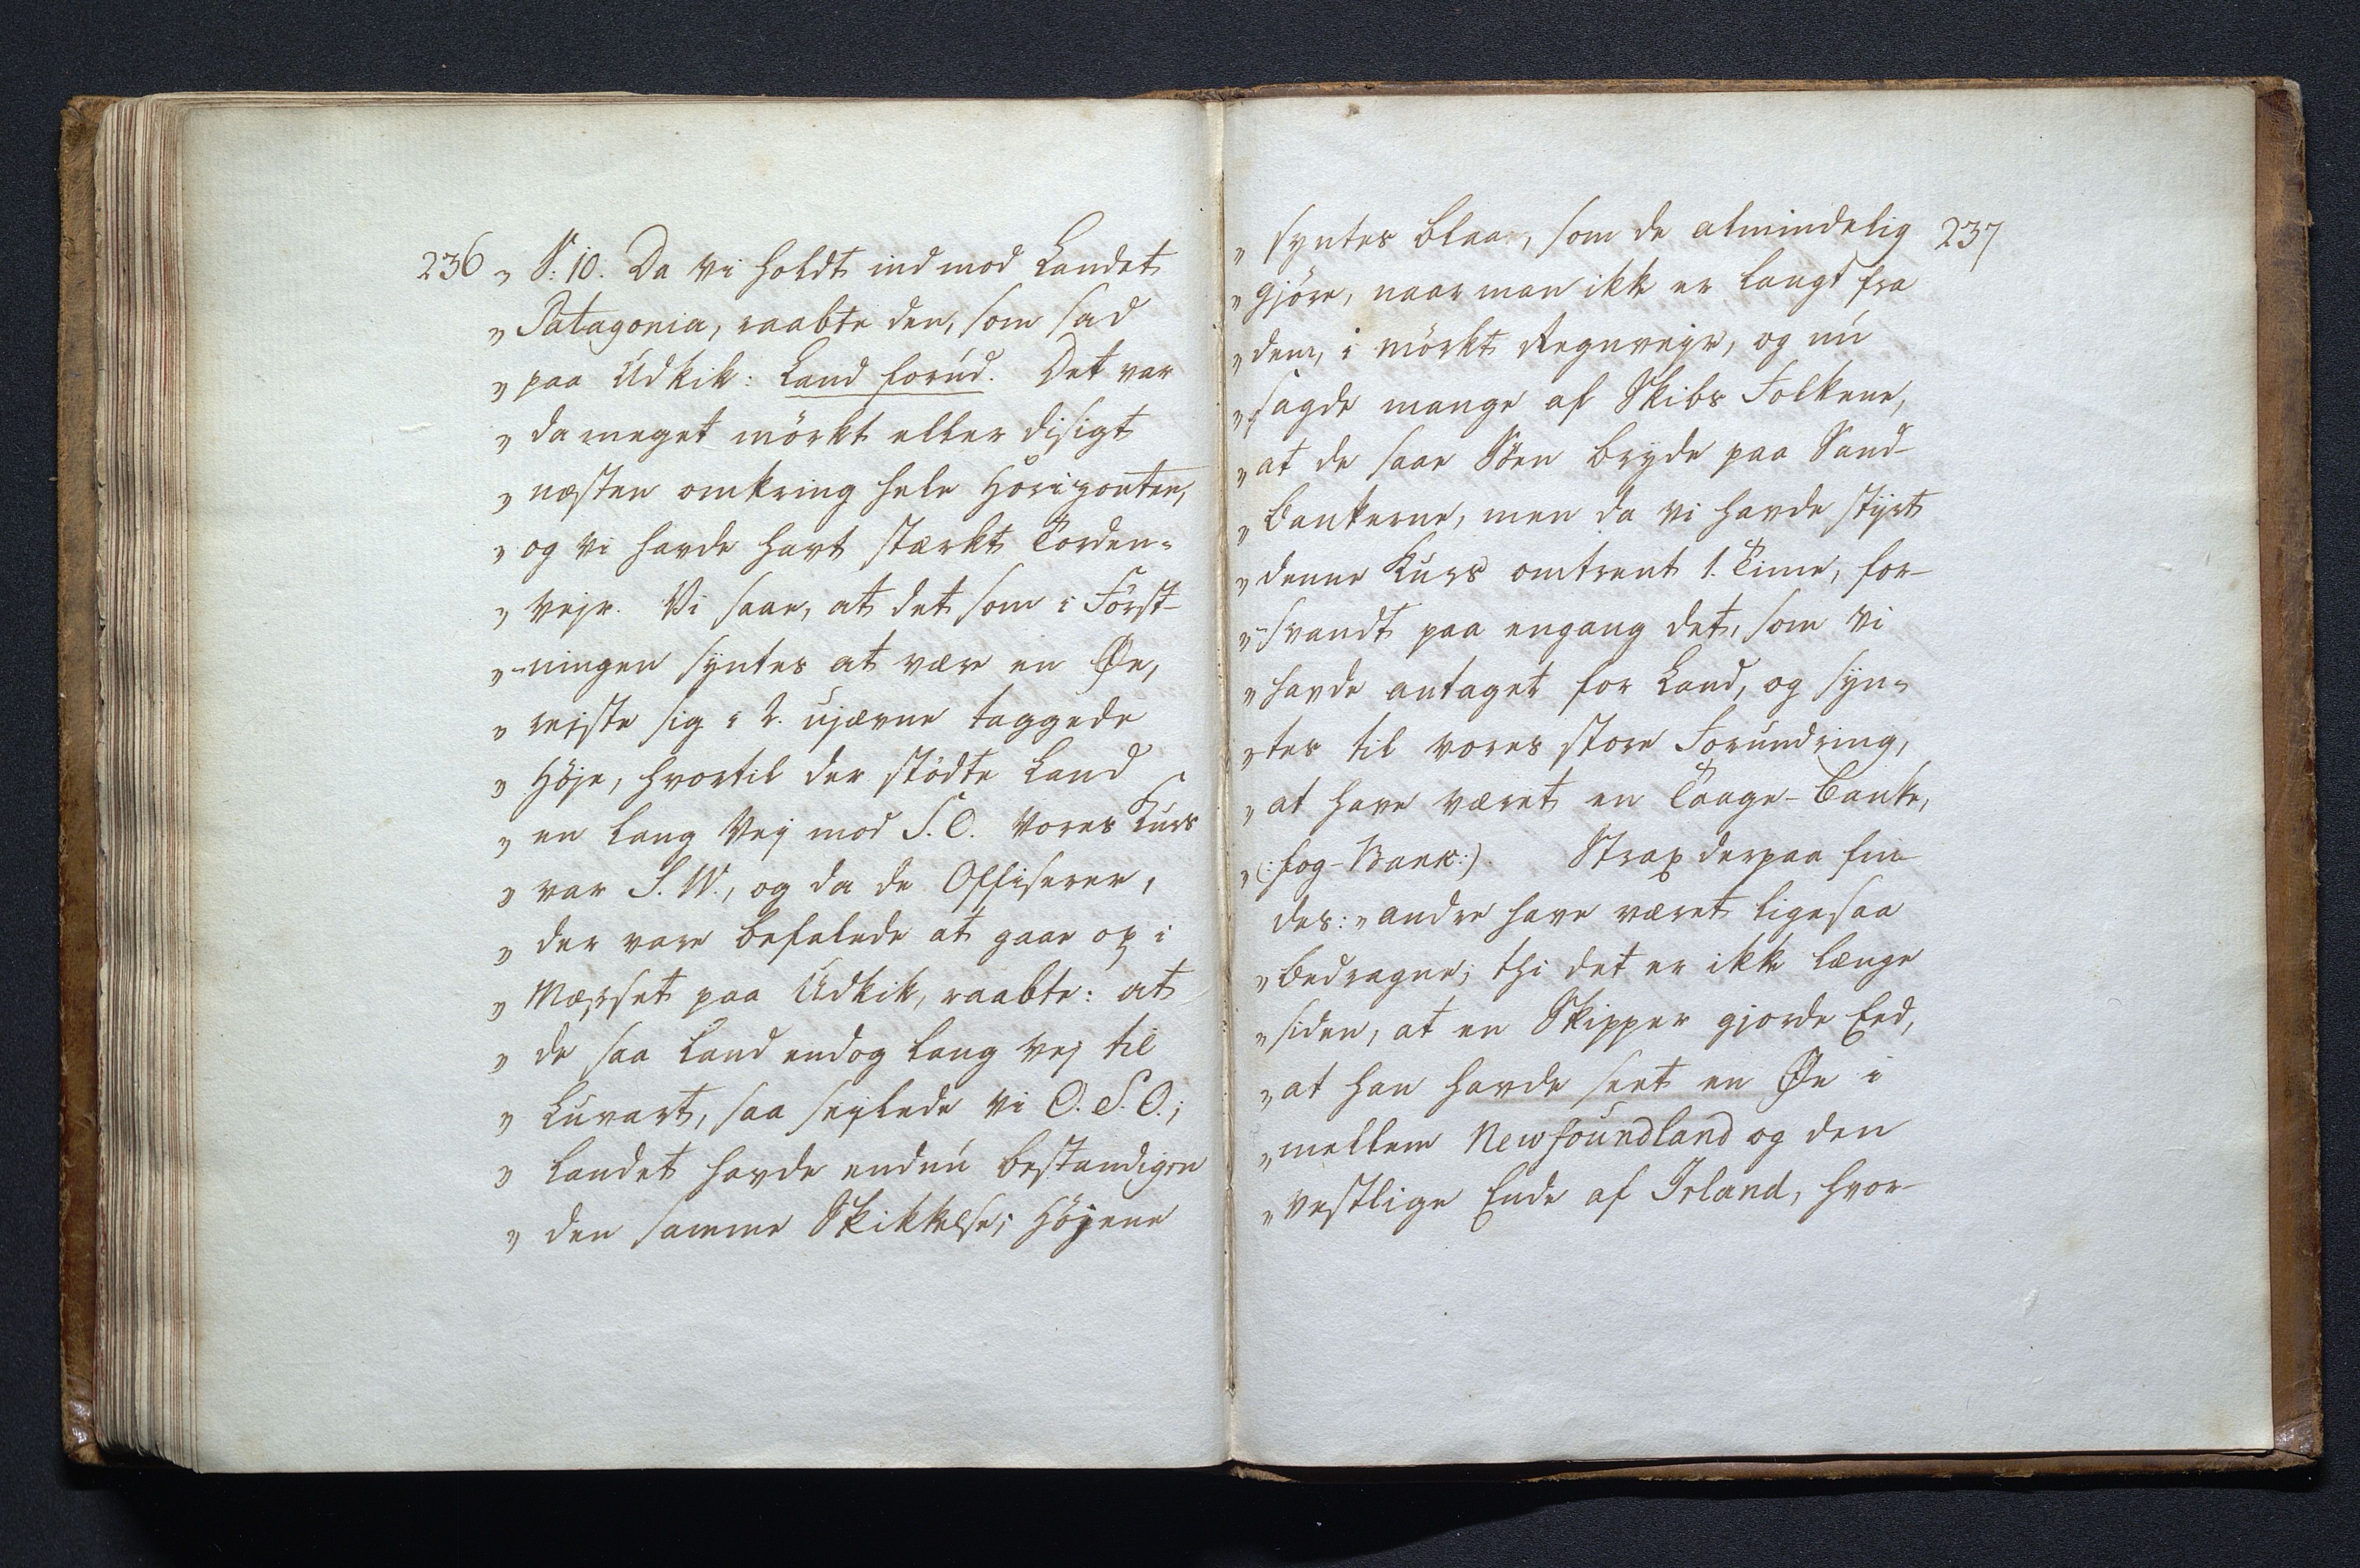 236 „ S: 10. Da vi holdt ind mod Landet
„ Patagonia, raabte den, som sad
„ paa Udkik: Land forud. Det var
„ da meget mörkt eller disigt
„ næsten omkring hele Horizonten,
„ og vi havde havt stærkt Torden=
„ vejr. Vi saae, at det som i Först-
„ -ningen syntes at være en Øe,
„ rejste sig i 2. ujævne taggede
„ Höje, hvortil der stödte Land
„ en lang Vej mod S.O. Vores Kurs
„ var S.W., og da de Officerer,
„ der vare befalede at gaae op i
„ Mærset paa Udkik, raabte: at
„ de saa Land endog lang vej til
„ Luvart, saa sejlede vi O.S.O.;
„ Landet havde endnu bestandigen
„ den samme Skikkelse; Höjene
„ syntes blaae, som de almindelig 237
„ gjöre, naar man ikke er langt fra
„ dem, i mörkt Regnvejr, og nu
„ sagde mange af Skibs Folkene,
„ at de saae Söen bryde paa Sand-
„ bankerne, men da vi havde styrt
„ denne Kurs omtrent 1. Time, for-
„ -svandt paa engang det, som vi
„ havde antaget for Land, og syn=
„ tes til vores store Forundring,
„ at have været en Taage-Banke,
„ (: fog-Bank:). Strax derpaa fin-
des: „ andre have været ligesaa
„ bedragne; thi det er ikke længe
„ siden, at en Skipper gjorde Eed,
„ at han havde seet en Øe i
„ mellem Newfoundland og den
„ vestlige Ende af Irland, hvor-